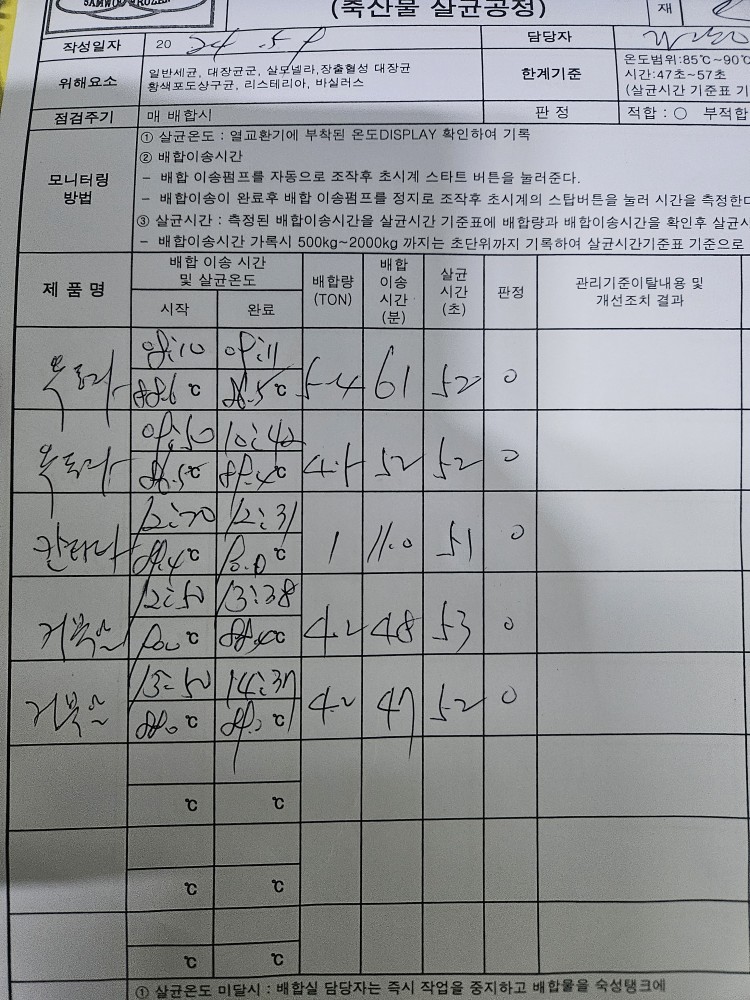 SAMWOO FROZEN
(축산물 살균공정)
재
작성일자 20 24 .5.9 담당자
위해요소 일반세균, 대장균군, 살모넬라,장출혈성 대장균
황색포도상구균, 리스테리아, 바실러스
한계기준 온도범위:85℃~90℃
시간:47초~57초
(살균시간 기준표 기
점검주기 매 배합시 판 정 적합 : ○ 부적합
모니터링
방법
① 살균온도 : 열교환기에 부착된 온도DISPLAY 확인하여 기록
② 배합이송시간
- 배합 이송펌프를 자동으로 조작후 초시계 스타트 버튼을 눌러준다.
- 배합이송이 완료후 배합 이송펌프를 정지로 조작후 초시계의 스탑버튼을 눌러 시간을 측정한다
③ 살균시간 : 측정된 배합이송시간을 살균시간 기준표에 배합량과 배합이송시간을 확인후 살균시
- 배합이송시간 가록시 500kg~2000kg 까지는 초단위까지 기록하여 살균시간기준표 기준으로
제 품 명 배합 이송 시간
및 살균온도
시작 완료
배합량
(TON)
배합
이송
시간
(분)
살균
시간
(초)
판정
관리기준이탈내용 및
개선조치 결과
08:10
88.6 ℃ ℃ 5.4 61 52 ○
09:50 10:40
℃ 89.4℃ 52 52 ○
12:20 12:31
89.4℃ 90.0℃ 1 11.0 51 ○
거북알 12:50 13:38
℃ ℃ 4.2 48 53 ○
거북알 13:50 14:37
℃ ℃ 4.2 47 52 ○
℃ ℃
℃ ℃
℃ ℃
① 살균온도 미달시 : 배합실 담당자는 즉시 작업을 중지하고 배합물을 숙성탱크에